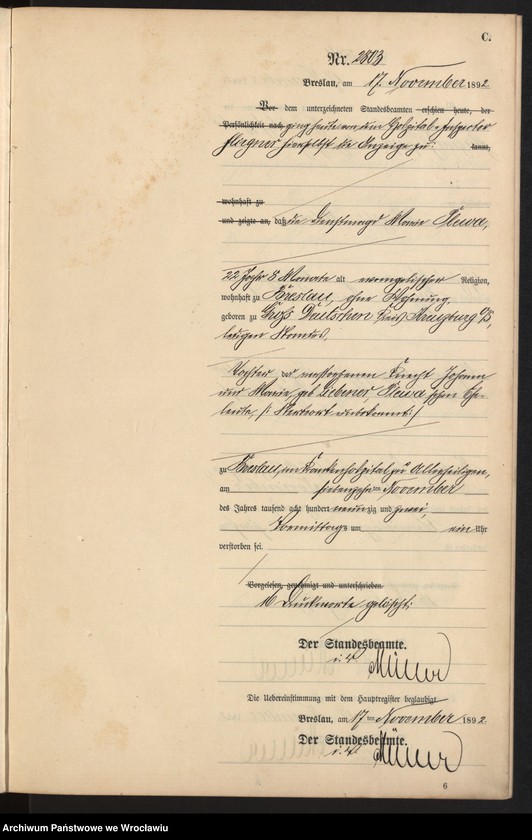 C.
Nr. 2803
Breslau, am 17. November 1892
Vor dem unterzeichneten Standesbeamten erschien heute, der
Persönlichkeit nach ging heute von dem Hospital-Inspector
hierselbst die Anzeige zu: kannt,
wohnhaft zu
und zeigte an, daß die Dienstmagd Marie Plewa,
22 Jahr 8 Monate alt evangelischer Religion,
wohnhaft zu Breslau, ohne Wohnung,
geboren zu Deutschen Kreis Kreuzburg O/S,
ledigen Standes,
Tochter der verstorbenen Knecht Johann
und Marie, geb. Plewa'schen Ehe-
leute, /: Sterbeort unbekannt :/
zu Breslau, im Krankenhospital zu Allerheiligen,
am siebenzehnten November
des Jahres tausend acht hundert neunzig und zwei,
Vormittags um ein Uhr
verstorben sei.
Vorgelesen, genehmigt und unterschrieben
16 Druckworte gelöscht.
Der Standesbeamte.
i. V. Müller
Die Uebereinstimmung mit dem Hauptregister beglaubigt
Breslau, am 17ten November 1892.
Der Standesbeamte.
i. V. Müller
6
Archiwum Państwowe we Wrocławiu